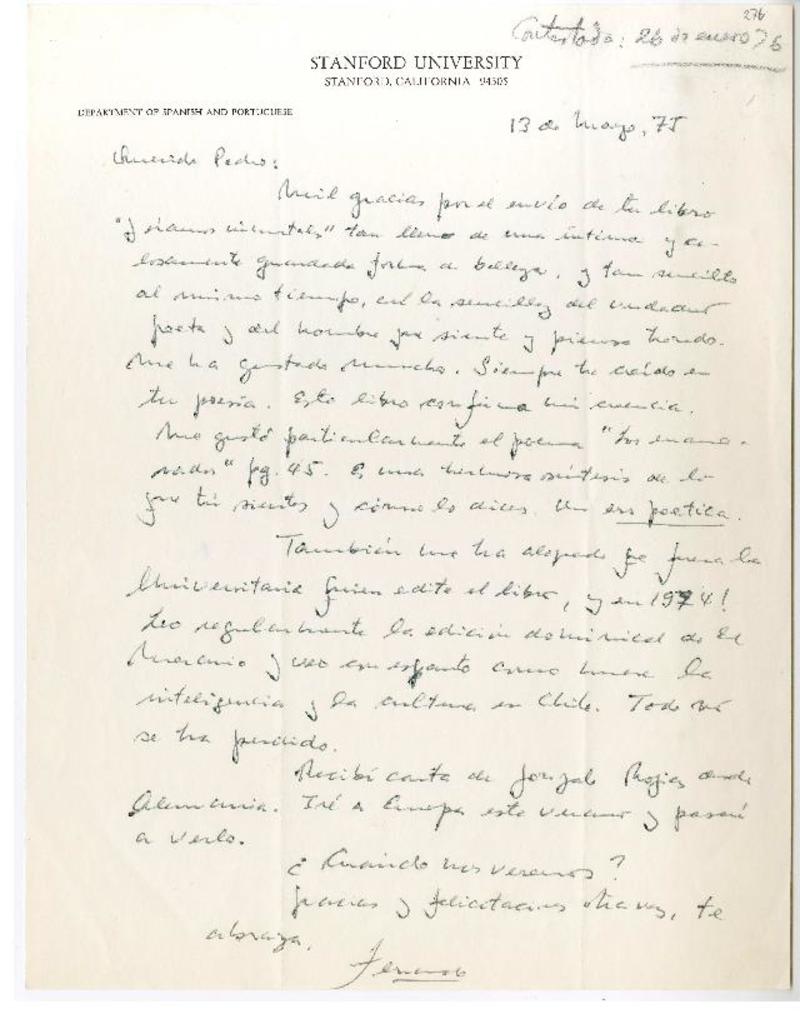 276
Contestada: 26 de enero 76
STANFORD UNIVERSITY
STANFORD, CALIFORNIA 94305
DEPARTMENT OF SPANISH AND PORTUGUESE
13 de Mayo, 75
Querido Pedro:
Mil gracias por el envío de tu libro
"Y éramos inmortales" tan lleno de una íntima y ce-
losamente guardada forma de belleza, y tan sencillo
al mismo tiempo, con la sencillez del verdadero
poeta y del hombre que siente y piensa hondo.
Me ha gustado mucho. Siempre he creído en
tu poesía. Este libro confirma mi creencia.
Me gustó particularmente el poema "Los enamo-
rados" pg. 45. Es una hermosa síntesis de lo
que tú sientes y cómo lo dices. Un ars poetica.
También me ha alegrado que fuera la
Universitaria quien edite el libro, y en 1974!
Leo regularmente la edición dominical de El
Mercurio y veo con espanto como muere la
inteligencia y la cultura en Chile. Todo
se ha perdido.
Recibí carta de Gonzalo Rojas desde
Alemania. Iré a Europa este verano y pasaré
a verlo.
¿Cuándo nos veremos?
Gracias y felicitaciones otra vez, te
abraza,
Fernando